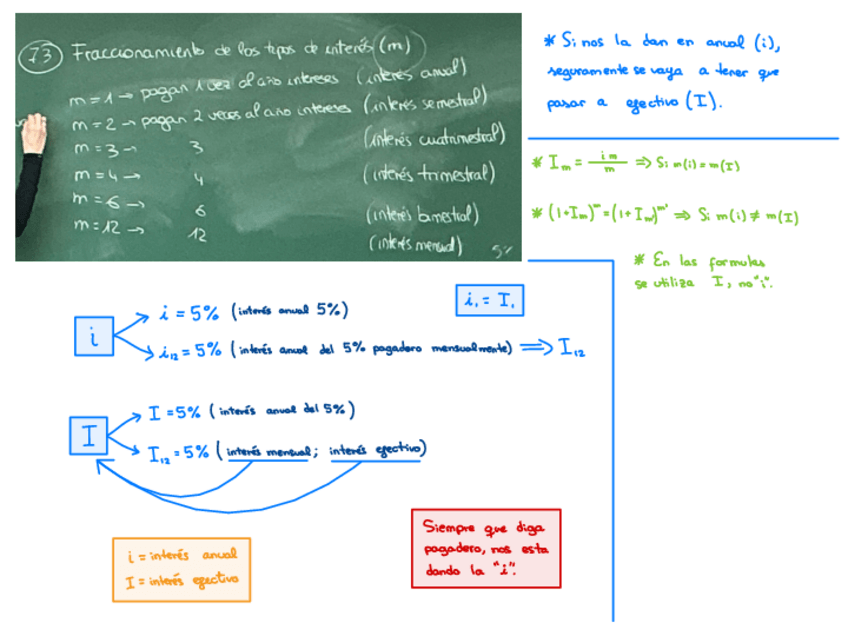 7.3 Fraccionamiento de los tipos de interés (m)
m = 1 → pagan 1 vez al año intereses (interés anual)
m = 2 → pagan 2 veces al año intereses (interés semestral)
m = 3 → 3 (interés cuatrimestral)
m = 4 → 4 (interés trimestral)
m = 6 → 6 (interés bimestral)
m = 12 → 12 (interés mensual)
5%
* Si nos la dan en anual (i),
seguramente se vaya a tener que
pasar a efectivo (I).
* Im = im/m ⇒ Si m(i) = m(I)
* (1+Im)^m = (1+Im')^m' ⇒ Si m(i) ≠ m(I)
* En las formulas
se utiliza I, no "i".
i₁ = I₁
i
i = 5% (interés anual 5%)
i₁₂ = 5% (interés anual del 5% pagadero mensualmente) ⇒ I₁₂
I
I = 5% (interés anual del 5%)
I₁₂ = 5% (interés mensual; interés efectivo)
i = interés anual
I = interés efectivo
Siempre que diga
pagadero, nos esta
dando la "i".